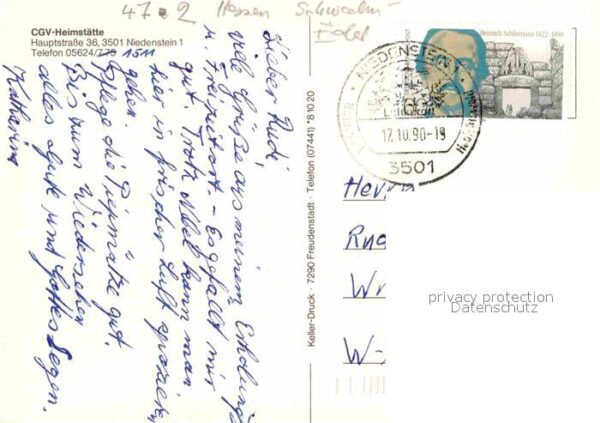 47-2 Hessen Schwalm-
Eder
CGV-Heimstätte
Hauptstraße 36, 3501 Niedenstein 1
Telefon 05624/775 1511
Lieber Rudi,
viel Grüße aus meinem Erholungs-
u. Freizeitort - Es gefällt mir
gut. Trotz Nebel kann man
hier in frischer Luft spazieren
gehen
Pflege die Piepmätze gut.
Bis zum Wiedersehen
alles Gute und Gottes Segen.
Katharina
Keller-Druck · 7290 Freudenstadt · Telefon (07441) *8 10 20
Heinrich Schliemann 1822-1890
60
NIEDENSTEIN
Luftkurort
12.10.90-19
3501
Herrn
privacy protection
Datenschutz